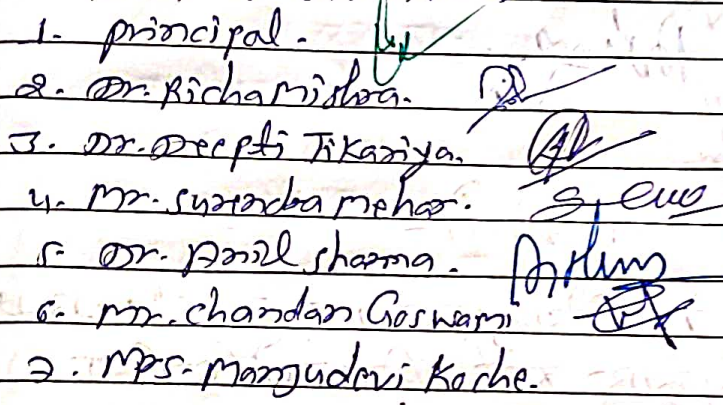 1. principal.
2. Dr. Richa mishra.
3. Dr. Deepti Tikariya.
4. Mr. surendra mehar.
5. Dr. Anil sharma.
6. Mr. chandan Goswami
7. Mrs. Manjudevi Koche.